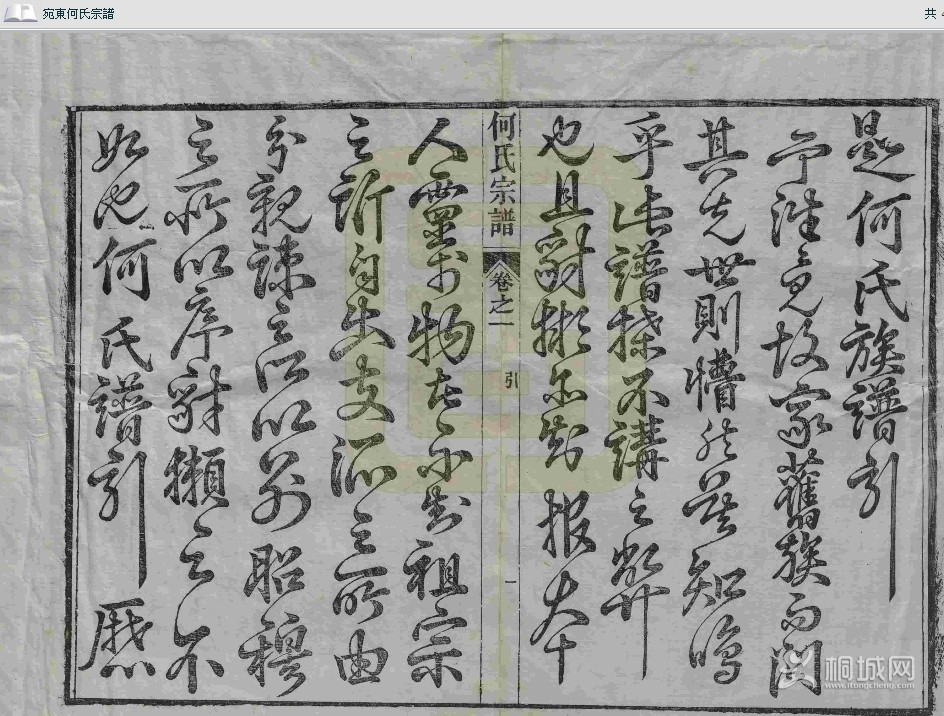 宛東何氏宗譜
共
題何氏族譜引
予往見故家舊族而問
其先世則懵然莫知嗚
乎此譜牒不講之弊
也且豺獺尚知報本
何氏宗譜 卷之一 引 一
人靈於物者不知祖宗
之所自出支派之所由
分親疎之所以別昭穆
之所以序豺獺之不
如也何氏譜引歷
桐城网
www.itongcheng.com